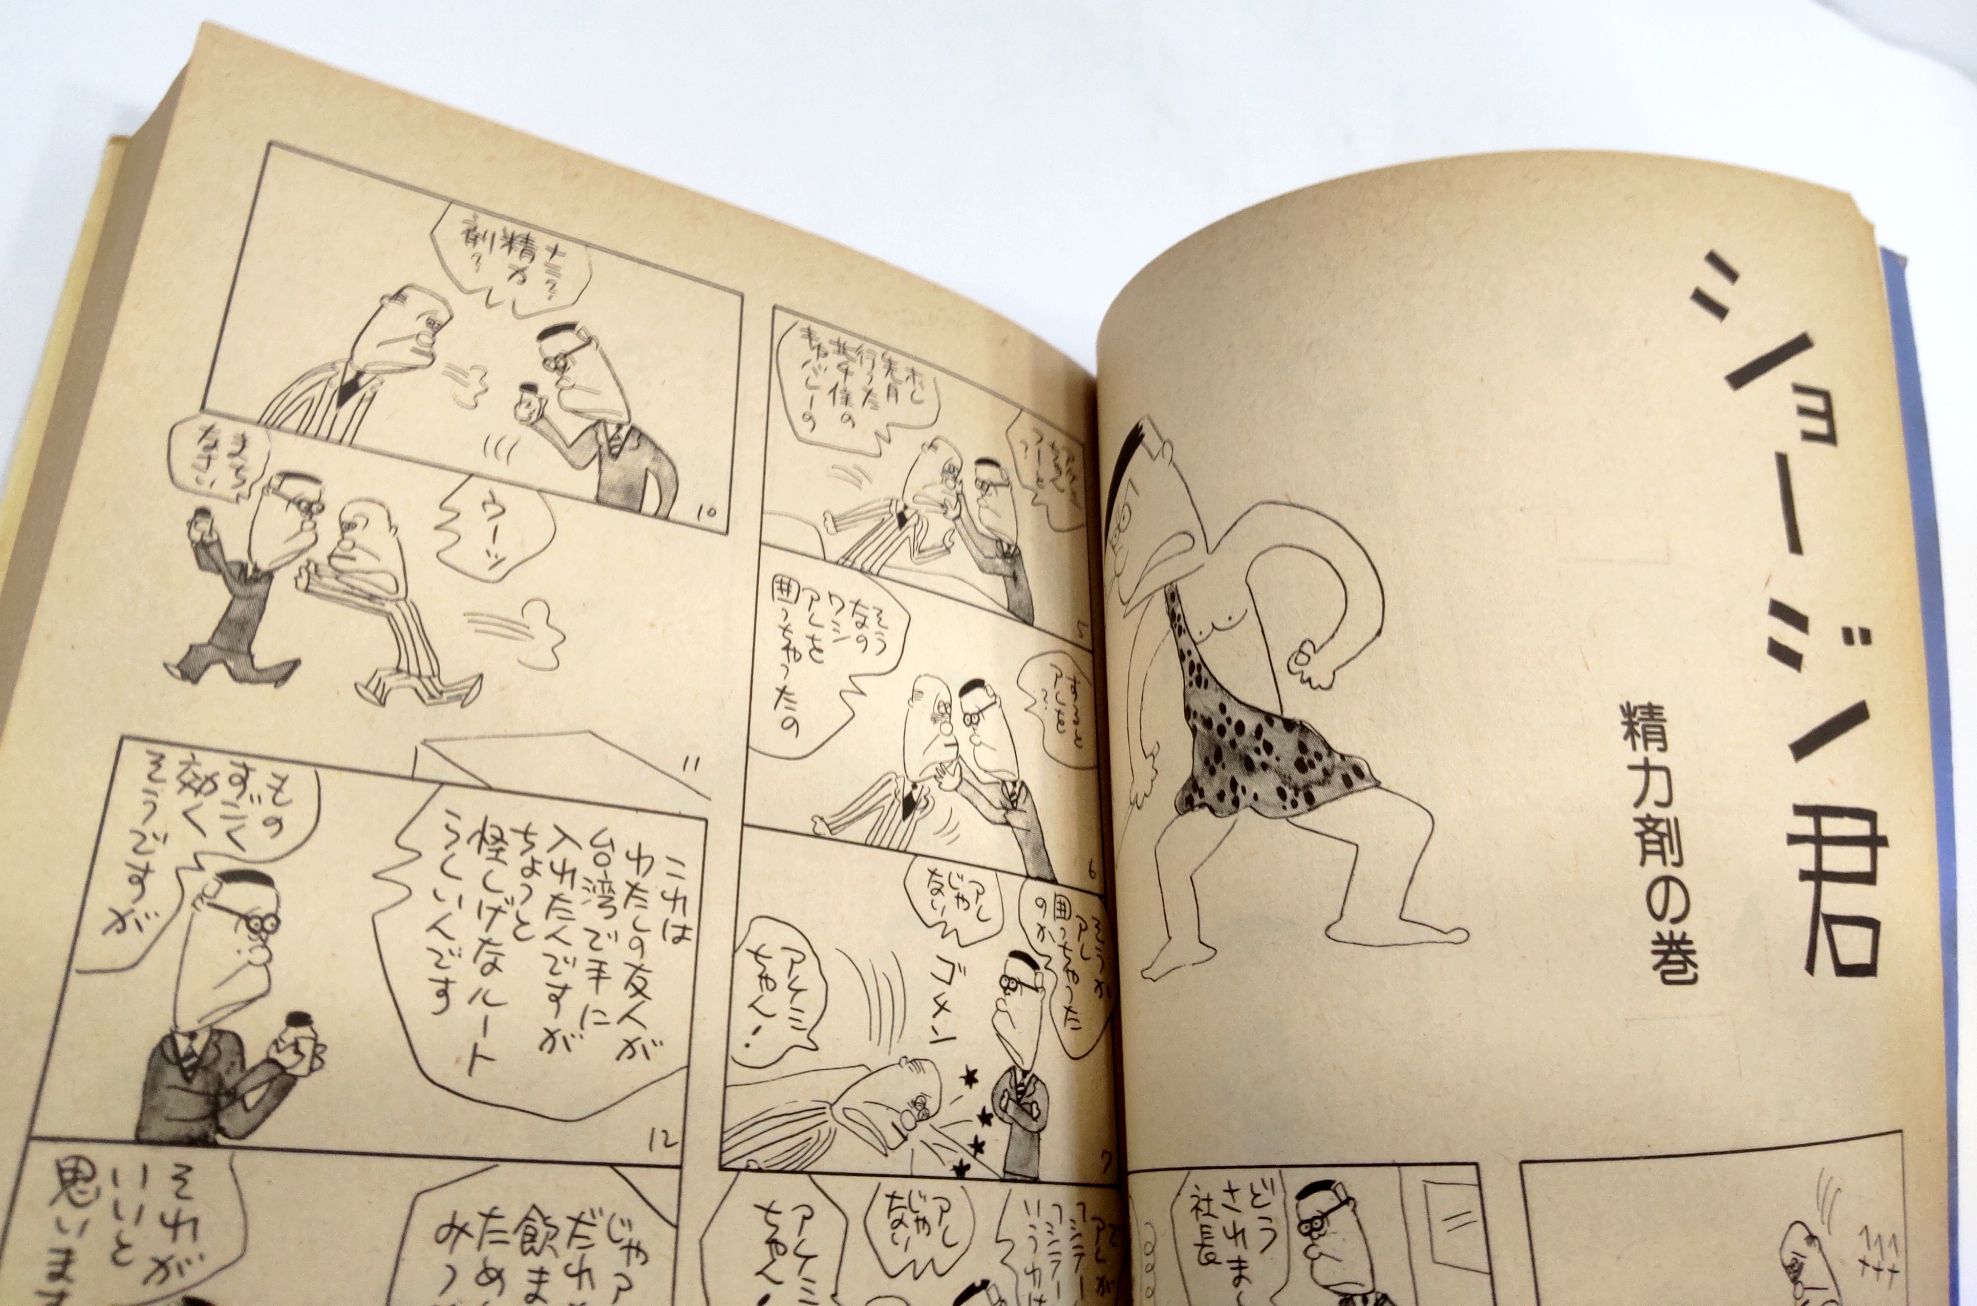 ショージ君
精力剤の巻
どう
されまし
社長
ホレ
先月
行った
キャバレーの
5
そう
なの
ワシ
アレを
囲っちゃったの
6
そうか
アレ
囲っちゃった
のか
アレ
じゃ
ない
ゴメン
アケミ
ちゃん!
7
アレが
アレ
じゃ
ない
アケミ
ちゃん!
ナニ?
精力
剤?
10
ウーッ
まち
なさい
11
これは
わたしの友人が
台湾で手に
入れたんですが
ちょっと
怪しげなルート
らしいんです
もの
すごく
効く
そうですが
12
じゃア
だれ
飲ま
ため
みっ
それが
いいと
思います